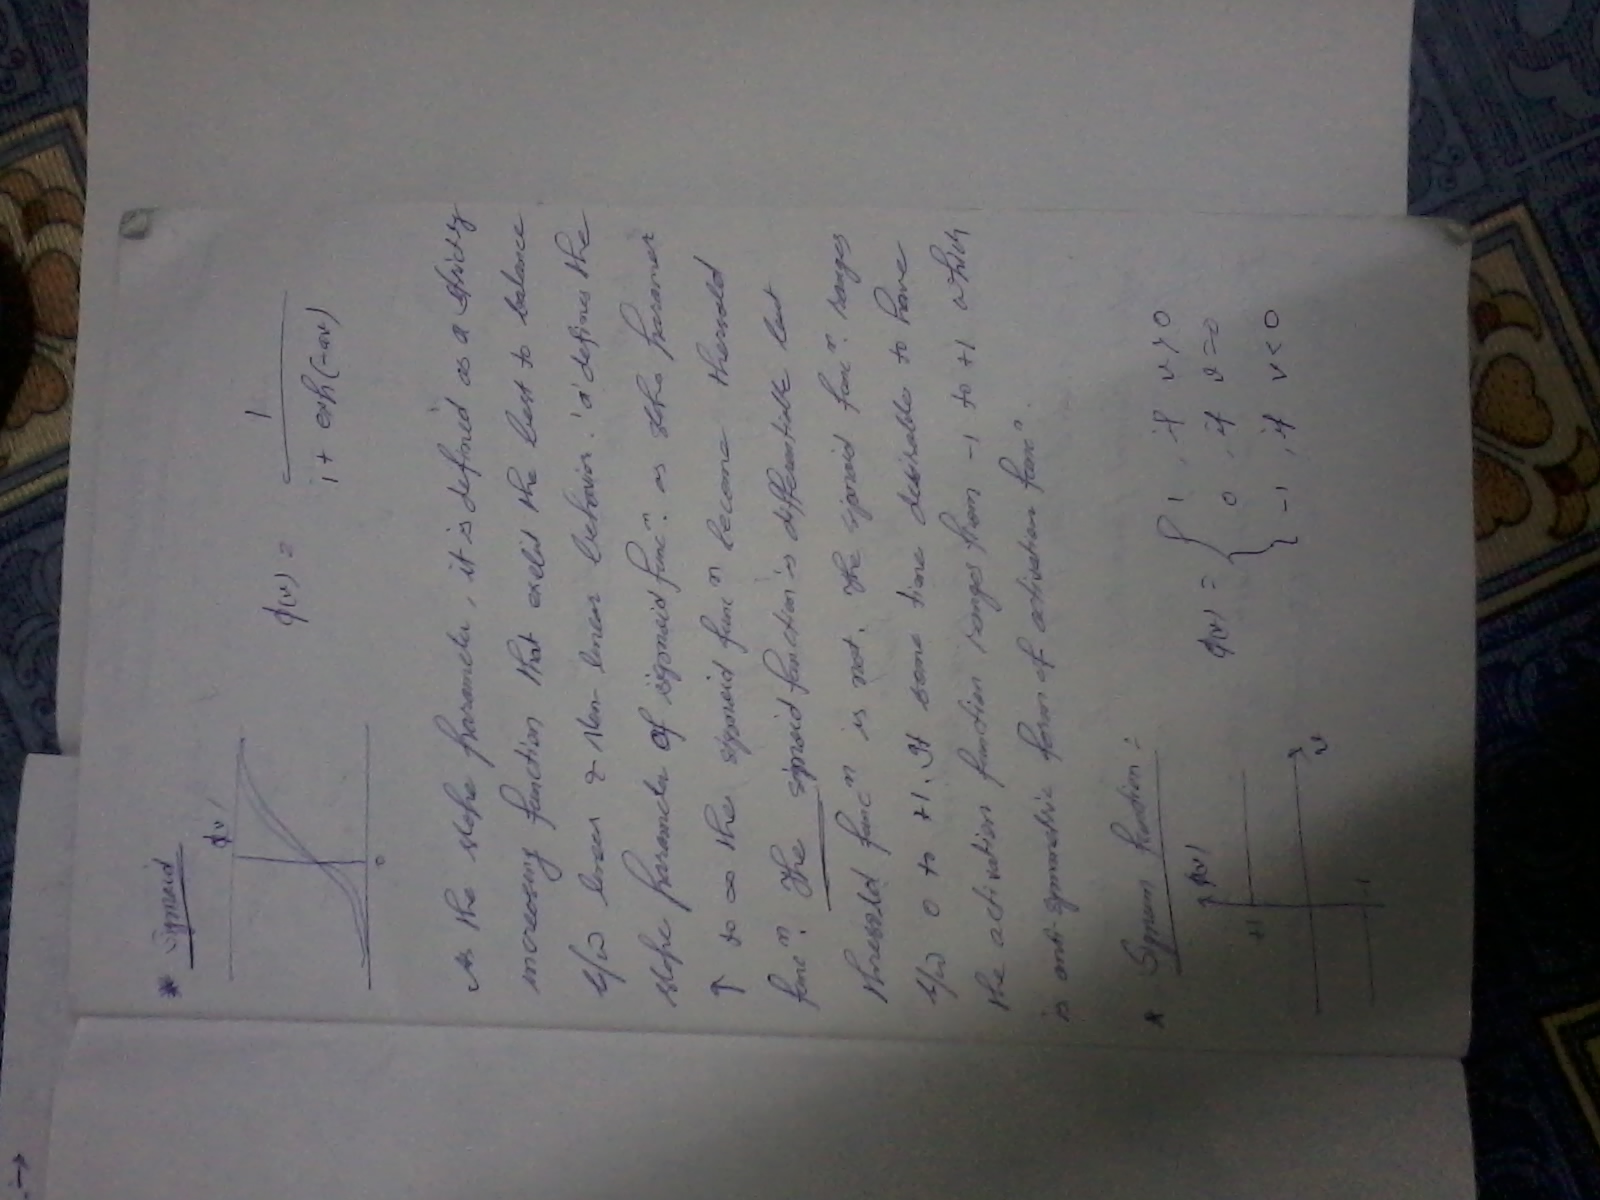 * Sigmoid
φ(v)
0
φ(v) = 1 / 1 + exp(-av)
As the slope parameter, it is defined as a strictly
increasing function that exebit the best to balance
b/w linear & Non-linear behavior. 'a' defines the
slope parameter of sigmoid funcⁿ. as the parameter
↑ to ∞ the sigmoid funcⁿ become threshold
funcⁿ. The sigmoid function is differentiable but
threshold funcⁿ is not. The sigmoid funcⁿ. ranges
b/w 0 to +1. It some time desirable to have
the activation function ranges from -1 to +1 which
is anti symmetric form of activation funcⁿ.
* Signum function =
φ(v)
+1
v
-1
φ(v) = { 1, if v > 0
0, if v = 0
-1, if v < 0